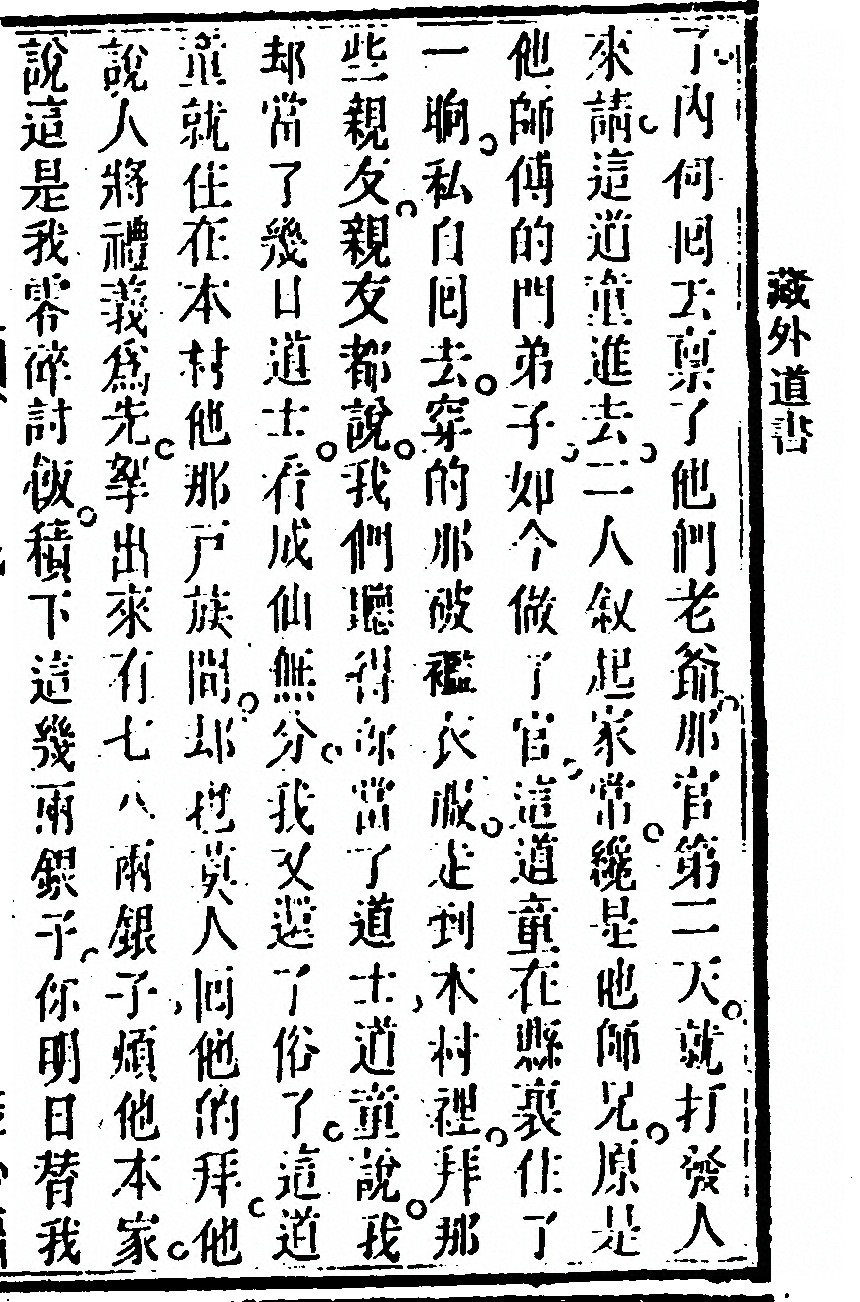 藏外道書
了內何回去稟了他們老爺那官第二天就打發人
來請這道童進去二人敘起家常纔是他師兄原是
他師傅的門弟子如今做了官這道童在縣裏住了
一晌私自回去穿的那破襤衣服走到本村裡拜那
些親友親友都說我們聽得你當了道士道童說我
却當了幾日道士看成仙無分我又還了俗了這道
童就住在本村他那戶族間却也莫人回他的拜他
說人將禮義為先拏出來有七八兩銀子煩他本家
說這是我零碎討飯積下這幾兩銀子你明日替我